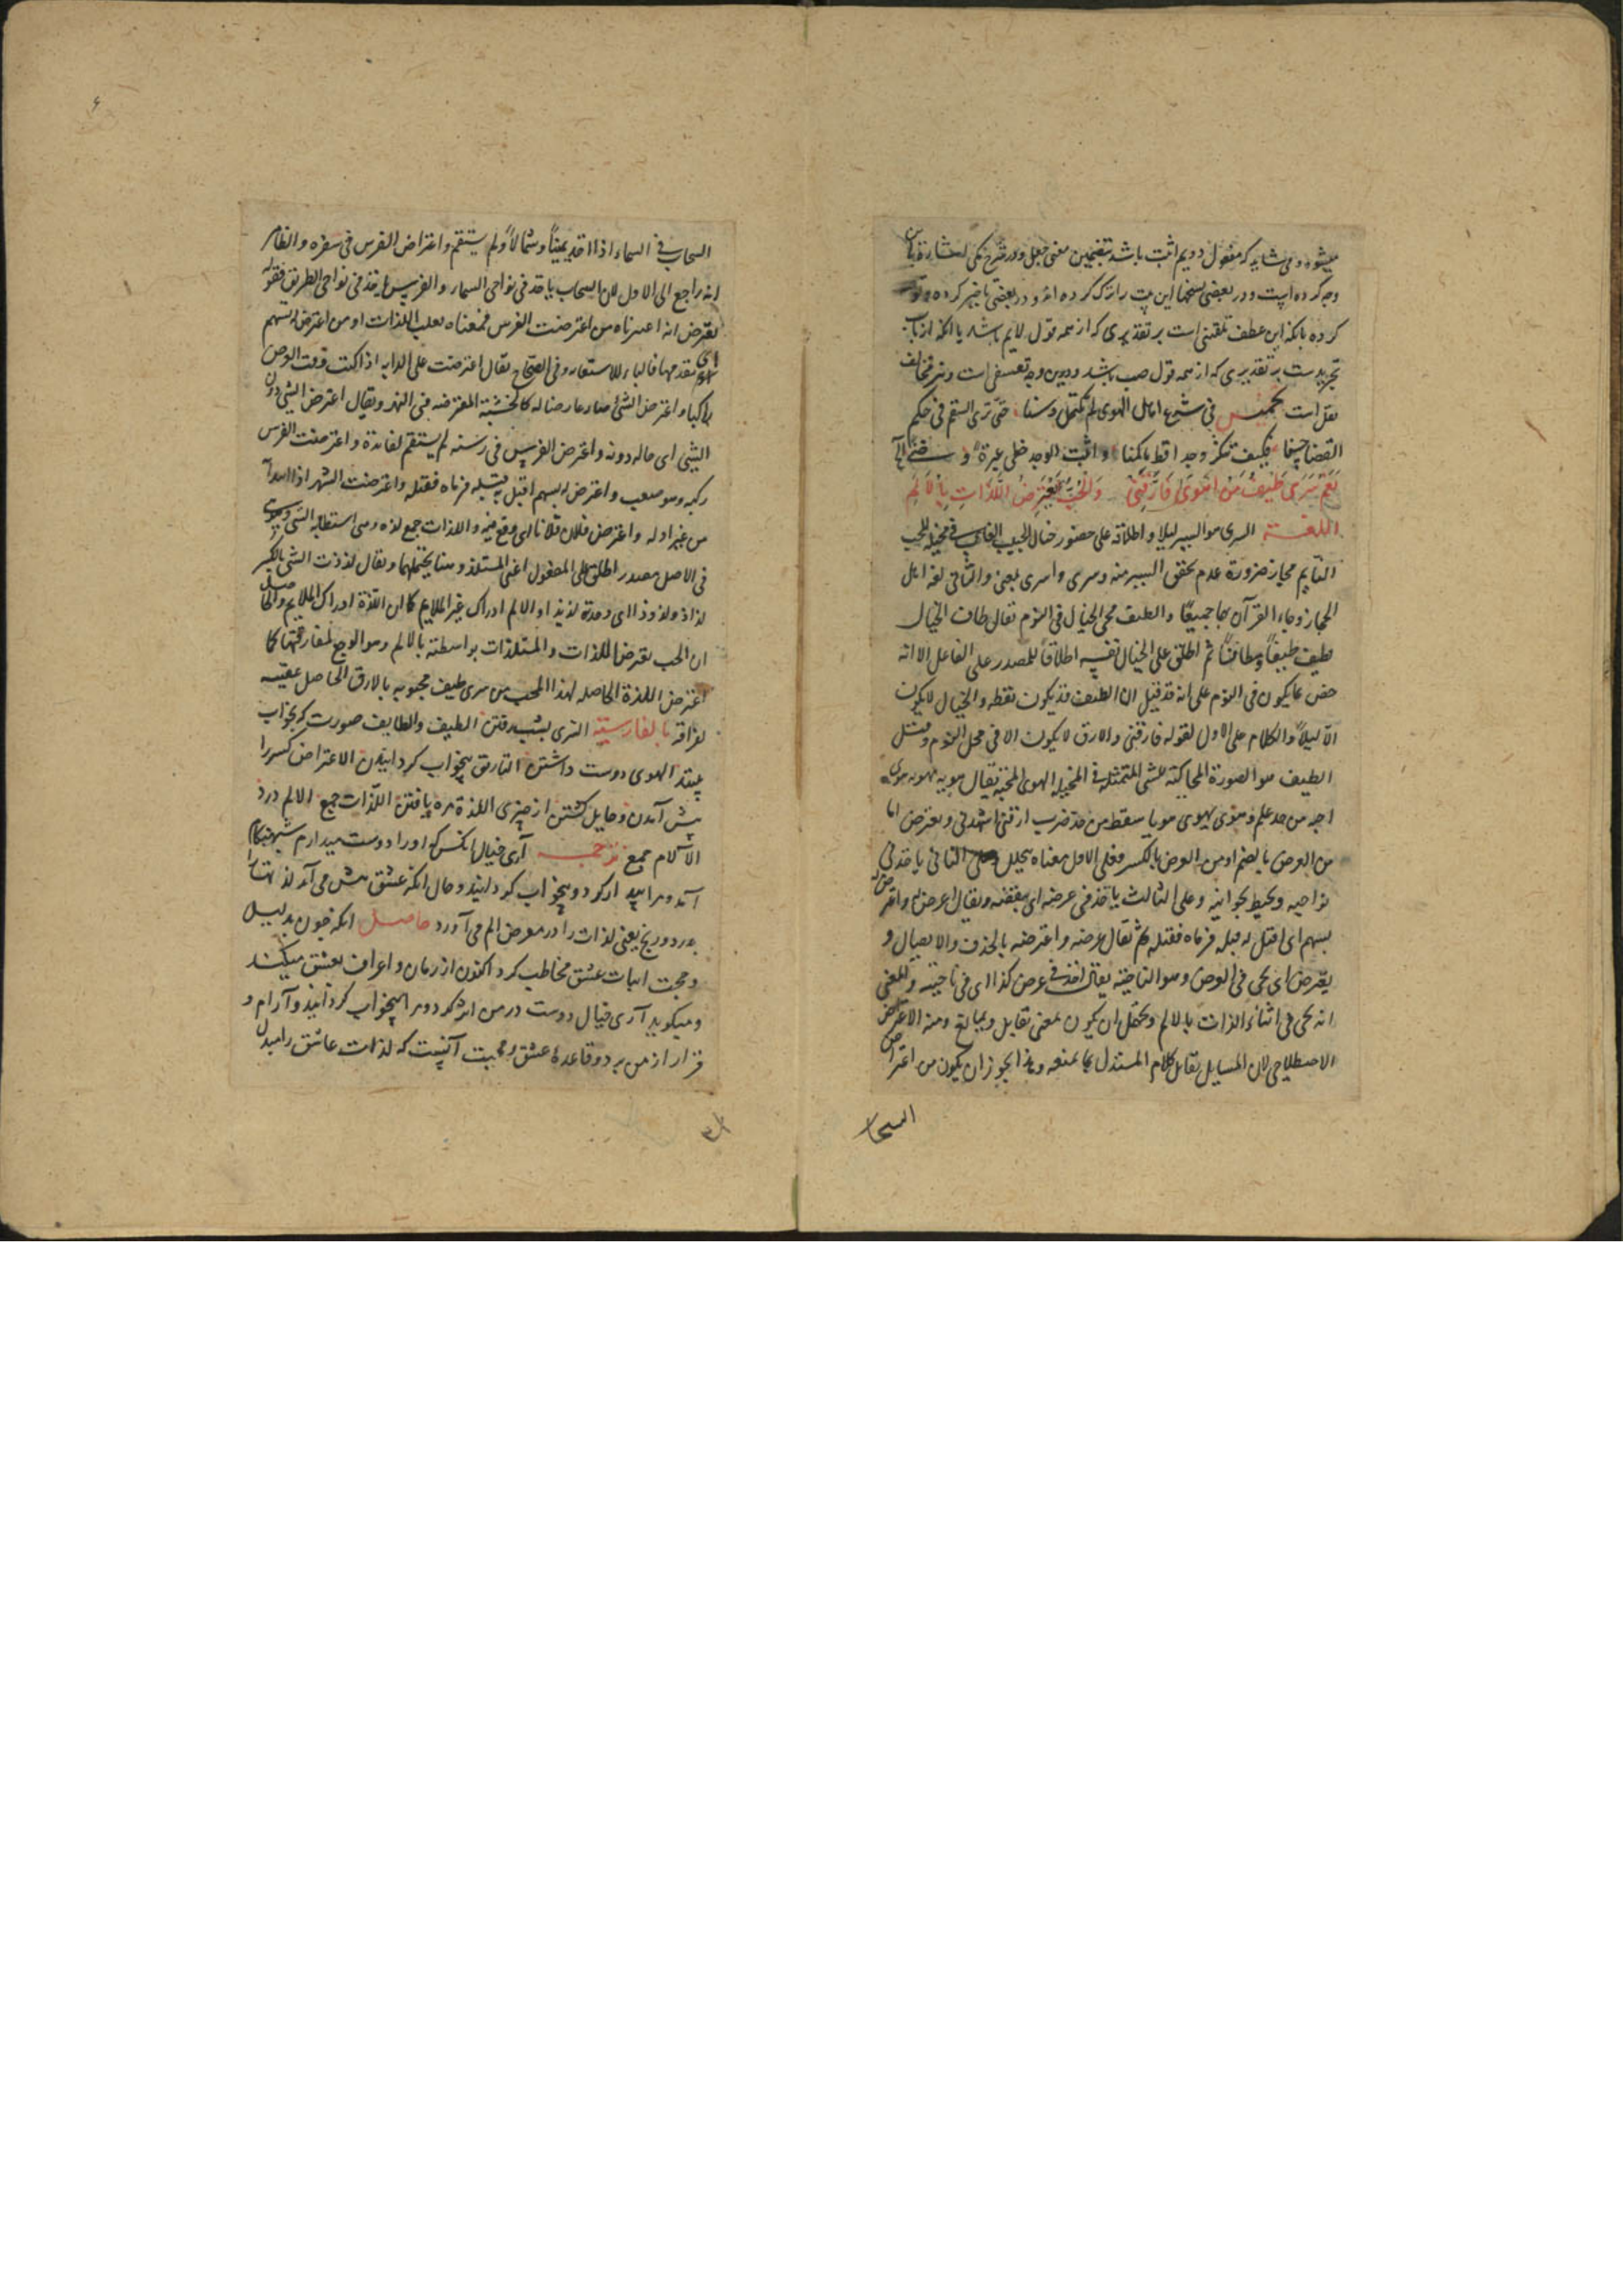 میشود و می شاید که مفعول دویم اثبت باشد بتضمین معنی جعل و در شرح مکی
وجه کرده است و در بعضی نسخها این بیت را ترک کرده اند و در بعضی تاخیر کرده
کرده بانکه این عطف تلقینی است بر تقدیری که از همه قول لایم باشد یا انکه از باب
تجریدست بر تقدیری که از همه قول صب باشد و دیرین وجه تعسفی است و نیز مخالف
نقل است تخمیس فی شرع اهل الهوی لم تکتحل وسنا حتی تری السقم فی حکم
القضا حسنا فکیف تنکر وجدا قط ما کمنا و اثبت الوجد خطی عبرة و ضنی
نَعَمْ سَرَی طَیْفُ مَنْ اَهْوَی فَاَرَّقَنِی وَالْحُبُّ یَعْتَرِضُ اللَّذَّاتِ بِالْاَلَمِ
اللغة السری هو السیر لیلا و اطلاقه علی حضور خیال الحبیب الغایب فی مخیلة المحب
النایم مجاز ضرورة عدم تحقق السیر منه و سری و اسری بمعنی و الثانی لغة اهل
الحجاز و جاء القرآن بها جمیعًا و الطیف مجی الخیال فی النوم یقال طاف الخیال
یطیف طیفًا و مطافًا ثم اطلق علی الخیال نفسه اطلاقًا للمصدر علی الفاعل الا انه
خص بما یکون فی النوم علی انه قد قیل ان الطیف قد یکون یقظه و الخیال لا یکون
الا لیلاً و الکلام علی الاول لقوله فارقنی و الارق لا یکون الا فی محل النوم و قیل
الطیف هو الصورة المحاکیة للشی المتمثلة فی المخیله الهوی المحبة یقال هویه یهویه هوی
احبه من حد علم و هوی یهوی هویا سقط من حد ضرب ارقنی اسهدنی و یعترض اما
من العرض بالضم او من العرض بالکسر فعلی الاول معناه یتخلل الثانی یاخذ فی
نواحیه و یحیط بجوانبه و علی الثالث یاخذ فی عرضه ای ینقضه و یقال اعرض له و اعترض له
بسهم ای اقبل له قبله فرماه فقتله ثم یقال عرضه و اعترضه بالحذف و الایصال و
یعترض ای یجی فی العرض و هو الناحیة یقال اخذ فی عرض کذا ای فی ناحیته و المعنی
انه یجی فی اثناء اللذات بالالم و یحتمل ان یکون بمعنی یقابل و یمانع و منه الاعتراض
الاصطلاحی لان السایل یقابل کلام المستدل بما یمنعه و هذا یجوز ان یکون من اعتراض
السحاب
السحاب فی السماء اذا اخذ یمینًا و شمالاً و لم یستقم و اعتراض الفرس فی سفره و الظاهر
انه راجع الی الاول لان السحاب یاخذ فی نواحی السماء و الفرس یاخذ فی نواحی الطریق فقوله
یعترض اذا اعتبرناه من اعترضت الفرس فمعناه یعلب اللذات او من اعترض له بسهم
فالباء للاستعاره و فی الصحاح یقال اعترضت علی الدابه اذا کنت وقت العرض
راکبا و اعترض الشی صار عارضا له کالخشبة المعترضه فی النهر و یقال اعترض الشی دون
الشیی ای حال دونه و اعترض الفرس فی رسنه لم یستقم لقائده و اعترضت الفرس
رکبه و هو صعب و اعترض له بسهم اقبل به قبله فرماه فقتله و اعترضت الشهر اذا ابتدأته
من غیر اوله و اعترض فلان فلانا ای وقع فیه و اللذات جمع لذه و هی استطابه الشی
فی الاصل مصدر اطلق علی المفعول اعنی المستلذ و هنا یحتملهما و یقال لذذت الشی بالکسر
لذاذ و لذوذ ای وجدته لذیذا و الالم ادراک غیر الملایم کما ان اللذة ادراک الملایم و الحاصل
ان الحب یعترض اللذات و المستلذات بواسطته بالالم و هو الوجع لمفارقتها کما
اعترض اللذة الحاصله لهذا المحب من سری طیف محبوبه بالارق الحاصل عقیبه
لفراقه بالفارسیة السری بشب رفتن الطیف و الطایف صورت که بخواب
بینند الهوی دوست داشتن التاریق بیخواب کردانیدن الاعتراض کسی را
پیش آمدن و حایل کشتن از چیزی اللذة مزه یافتن اللذات جمع الالم درد
الآلام جمع ترجمه آری خیال انکس که او را دوست میدارم شبهنکام
آمد و مرا بیدار کرد و بیخواب کردانید و حال انکه عشق پیش می آید لذتها را
بدرد و رنج یعنی لذات را در معرض الم می آورد حاصل انکه چون بدلیل
و حجت اثبات عشق مخاطب کرد اکنون از زبان او اعراف بعشق میکند
و میکوید آری خیال دوست در من اثر کرد و مرا بیخواب کردانید و آرام و
قرار از من برد و قاعدۀ عشق و محبت آنست که لذات عاشق را مبدل